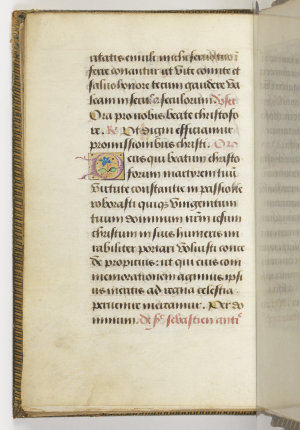 ferre conantur ut vite comite et
saluo honore tecum gaudere va
leam in secula seculorum
Ora pro nobis beate christofo
re. R. Ut digni efficiamur
promissionibus christi. Oro
Deus qui beatum christo
forum martyrem tuū
virtute constantie in passione
roborasti quiq; unigenitum
tuum dominum nr̄m iesum
christum in suis humeris mi
rabiliter portari voluisti conce
de propicius: ut qui eius com
memorationem agimus ipsi
us meritis ad regna celestia
peruenire mereamur. Per do
minum. De sc̄ sebastien antiᵉ